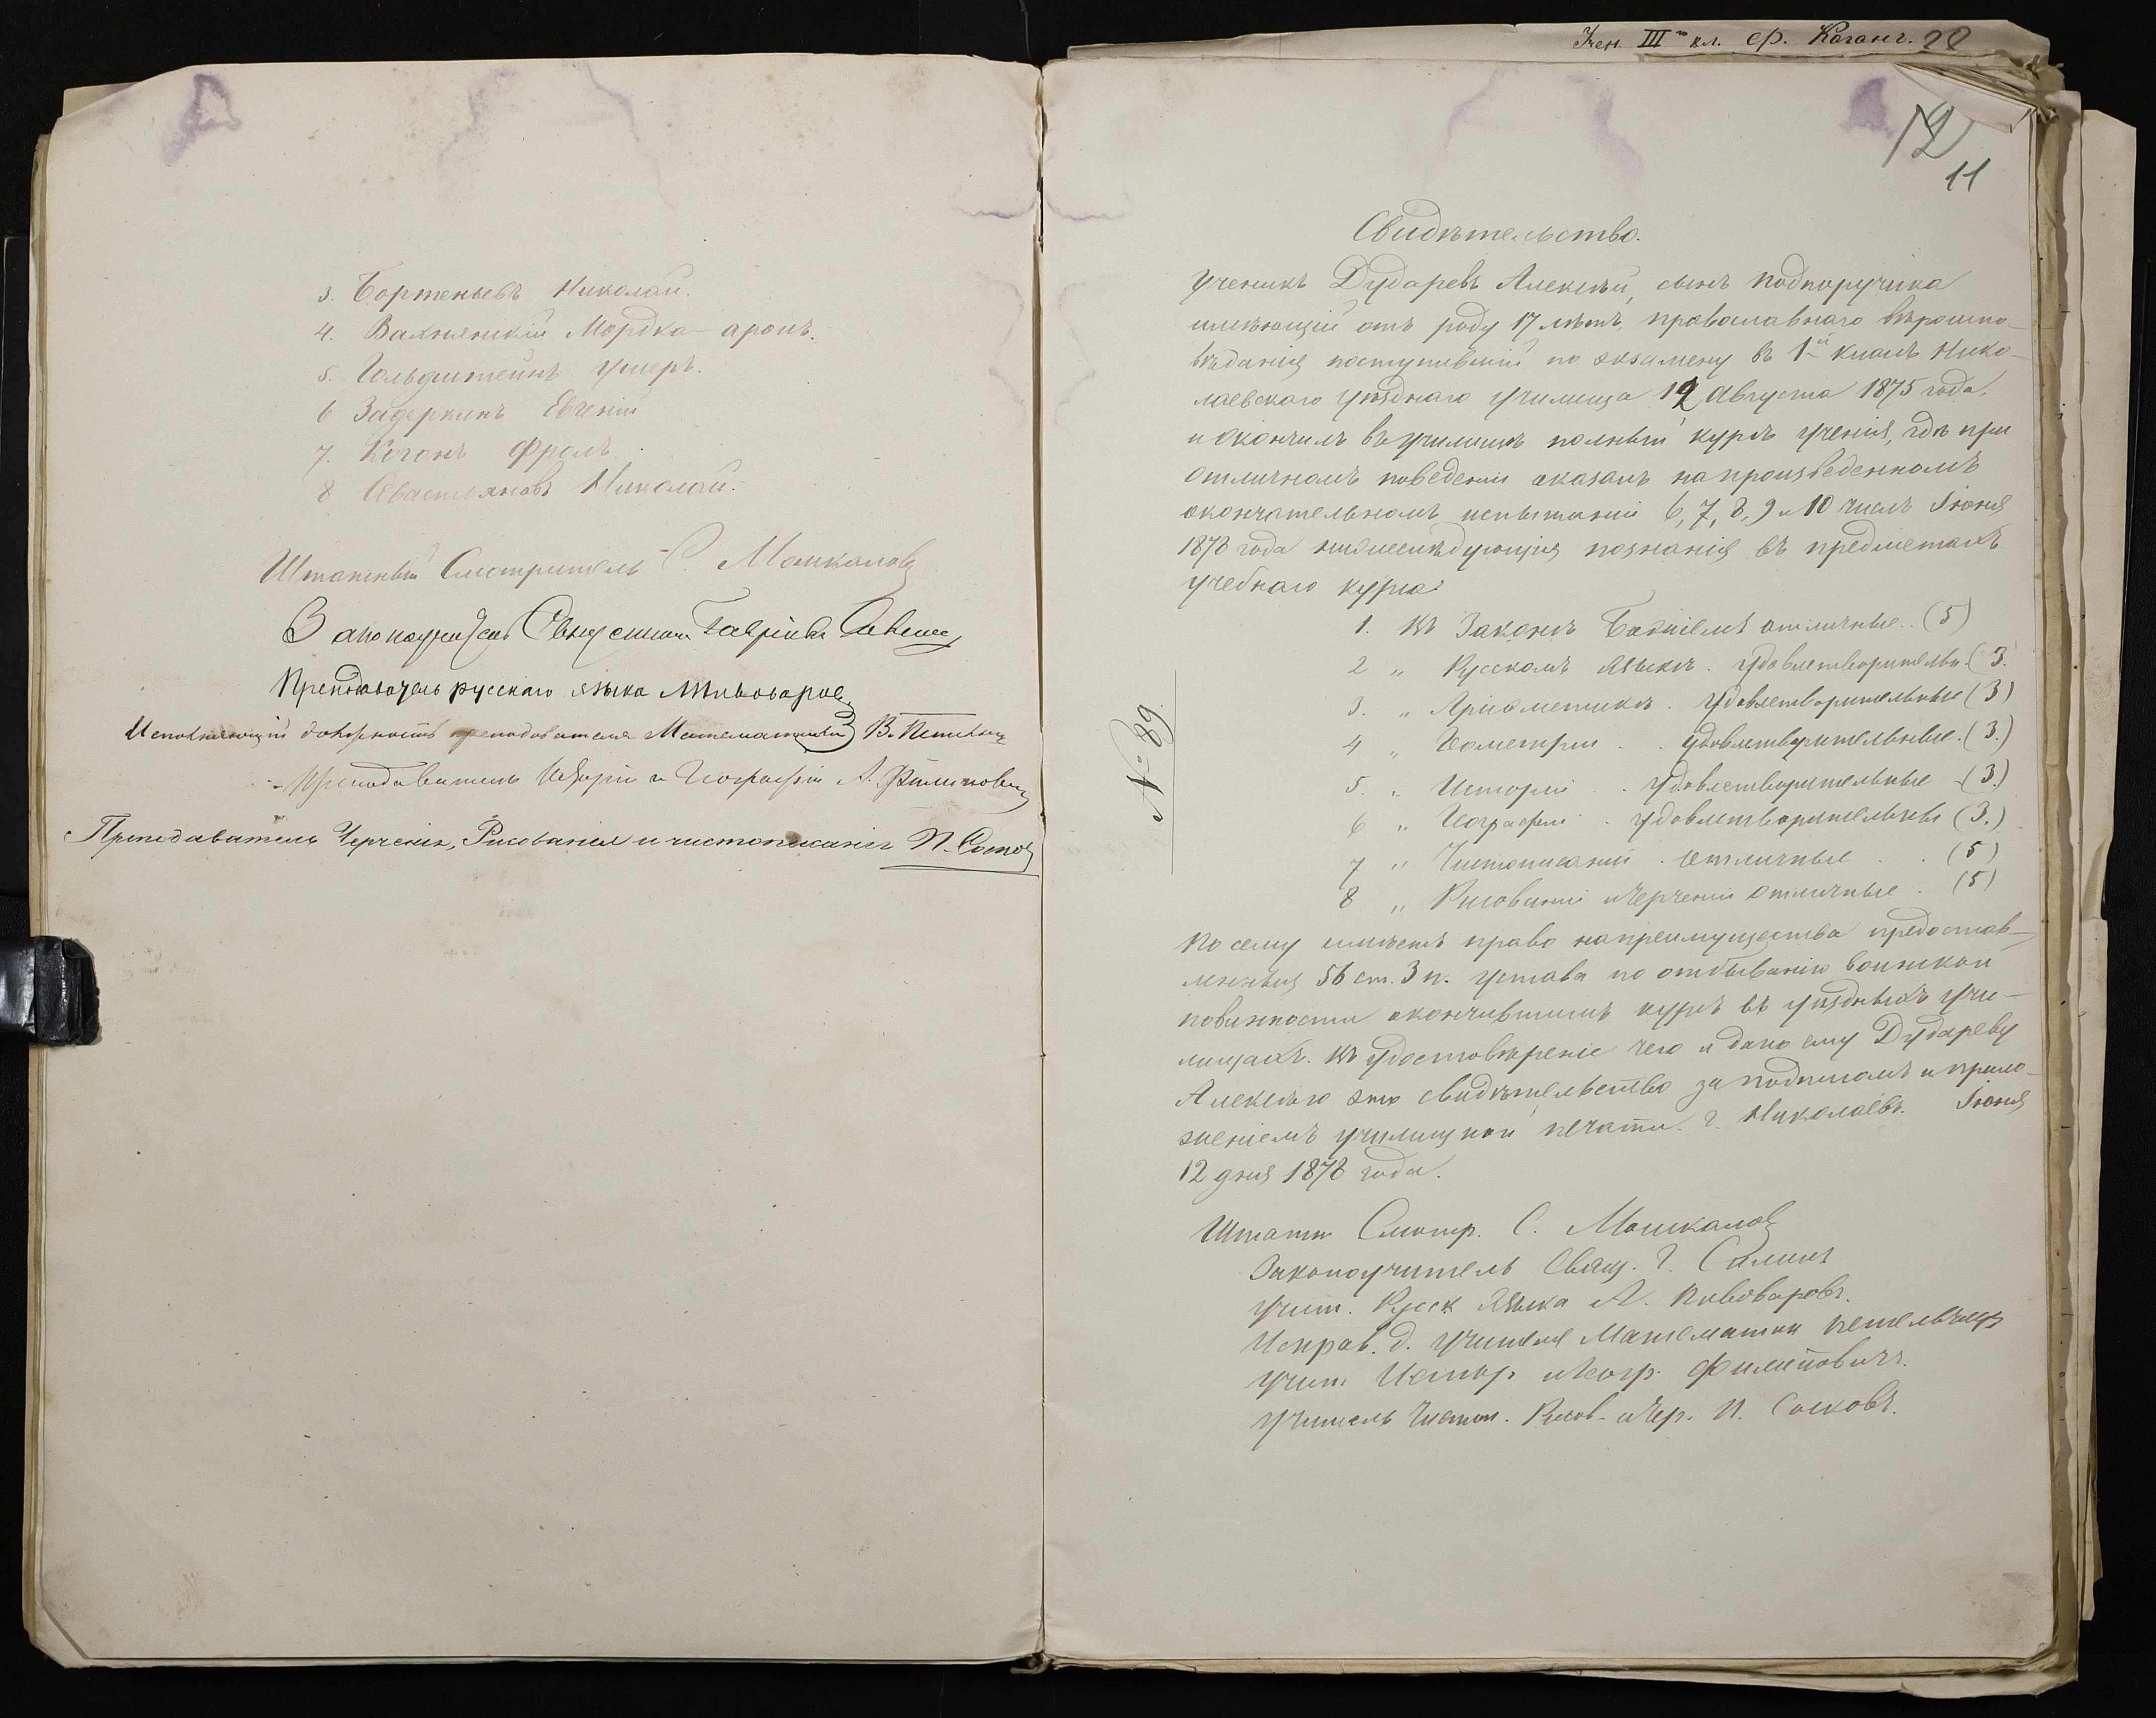 3. Бортеньевъ Николай.
4. Вахнянскій Мордка-аронъ.
5. Гольдштейнъ Ушеръ.
6 Задеркинъ Евгеній
7. Коганъ Фролъ.
8 Севастьяновъ Николай.
Штатный Смотритель С. Мошкалов
Законоучитель Священникъ Гавріилъ
Преподаватель русскаго языка А. Пивоваров
Исполняющій должность преподавателя Математики В.
Преподаватель Исторіи и Географіи А. Филипович
Преподаватель Черченія, Рисованія и чистописанія П.
Учен. III го кл. Фр. Коганъ. 22
12
11
Свидѣтельство.
Ученикъ Дударевъ Алексѣй, сынъ подпоручика
имѣющій отъ роду 17 лѣтъ, православнаго вѣроиспо-
вѣданія поступившій по экзамену въ 1й классъ Нико-
лаевскаго уѣзднаго училища 12 Августа 1875 года,
и окончилъ въ училищѣ полный курсъ ученія, гдѣ при
отличномъ поведеніи оказалъ на произведенномъ
окончательномъ испытаніи 6, 7, 8, 9 и 10 чиселъ Іюня
1878 года нижеслѣдующія познанія въ предметахъ
учебнаго курса:
1. Въ Законѣ Божіемъ отличные.. (5)
2 „ Русскомъ языкѣ. удовлетворительн. (3.
3. „ Ариѳметикѣ. удовлетворительные (3)
4 „ Геометріи . . удовлетворительные. (3.)
5. „ Исторіи . удовлетворительные - (3.)
6 „ Географіи . удовлетворительные (3.)
7 „ Чистописаніи . отличные . . (5)
8 „ Рисованіи и Черченіи отличные . (5)
№ 89.
По сему имѣетъ право на преимущества предостав-
ленныя 56 ст. 3 п. устава по отбыванію воинской
повинности окончившимъ курсъ въ уѣздныхъ учи-
лищахъ. Въ удостовѣреніе чего и дано ему Дудареву
Алексѣю это свидѣтельство за подписомъ и прило-
женіемъ училищной печати. г. Николаевъ. Іюня
12 дня 1878 года.
Штатн Смотр. С. Мошкалов
Законоучитель Свящ. Г.
Учит. Русск языка А. Пивоваровъ.
Исправ. д. учителя Математики
Учит Истор и Геогр. Филиповичъ.
Учитель Чистоп. Рисов. и Чер. П. Сосковъ.